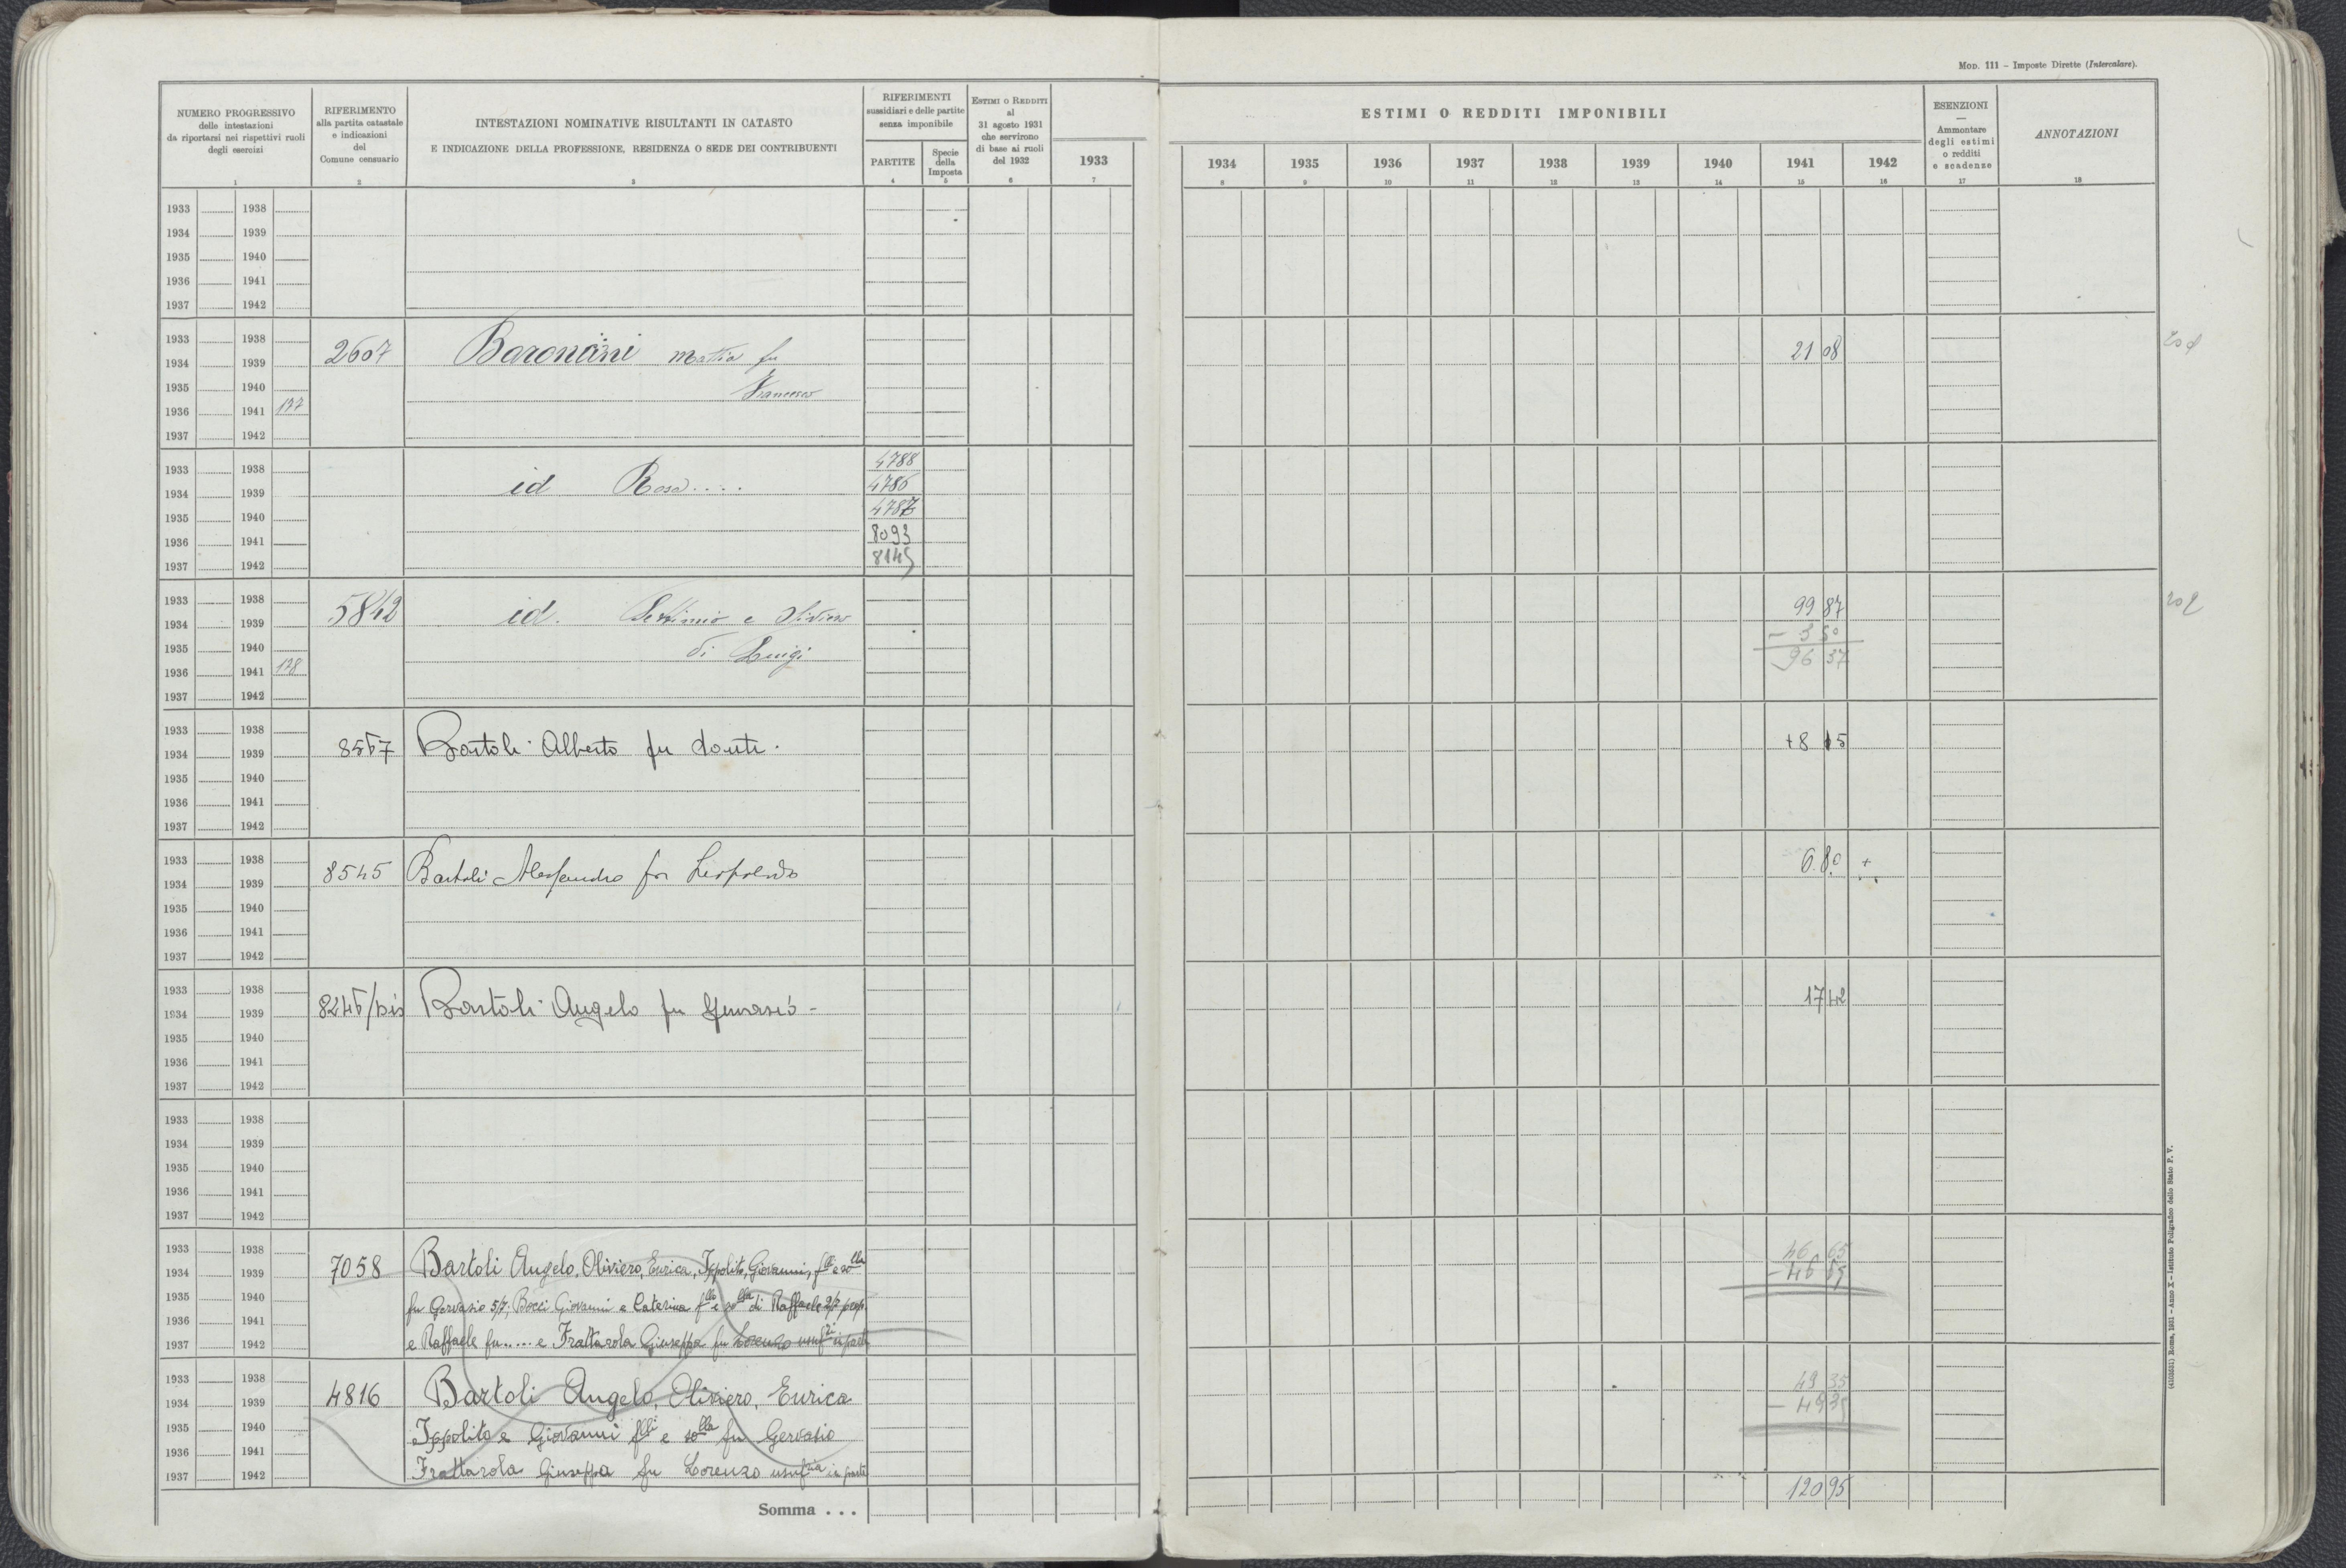 Mod. 111 – Imposte Dirette (Intercalare).
NUMERO PROGRESSIVO
delle intestazioni
da riportarsi nei rispettivi ruoli
degli esercizi
1
RIFERIMENTO
alla partita catastale
e indicazioni
del
Comune censuario
2
INTESTAZIONI NOMINATIVE RISULTANTI IN CATASTO
E INDICAZIONE DELLA PROFESSIONE, RESIDENZA O SEDE DEI CONTRIBUENTI
3
RIFERIMENTI
sussidiari e delle partite
senza imponibile
PARTITE
4
Specie
della
Imposta
5
Estimi o Redditi
al
31 agosto 1931
che servirono
di base ai ruoli
del 1932
6
ESTIMI O REDDITI IMPONIBILI
1933 1934 1935 1936 1937 1938 1939 1940 1941 1942
7 8 9 10 11 12 13 14 15 16
ESENZIONI
—
Ammontare
degli estimi
o redditi
e scadenze
17
ANNOTAZIONI
18
1933 1938
1934 1939
1935 1940
1936 1941
1937 1942
1933 1938
1934 1939 2607 Baroncini Mattia fu 21 08
1935 1940 Francesco
1936 1941 127
1937 1942
1933 1938 4788
1934 1939 id Rosa.... 4786
1935 1940 4787
1936 1941 8093
1937 1942 8145
1933 1938 99 87
1934 1939 5842 id. Settimio e Oliviero
1935 1940 di Luigi – 3 50
1936 1941 128 96 37
1937 1942
1933 1938
1934 1939 8567 Bartoli Alberto fu Dante. +8 15
1935 1940
1936 1941
1937 1942
1933 1938
1934 1939 8545 Bartoli Alessandro fu Leopoldo 6.80 +
1935 1940
1936 1941
1937 1942
1933 1938
1934 1939 8246/bis Bartoli Angelo fu Gervasio – 17 42
1935 1940
1936 1941
1937 1942
1933 1938
1934 1939
1935 1940
1936 1941
1937 1942
1933 1938 46 65
1934 1939 7058 Bartoli Angelo, Oliviero, Eurica, Ippolito, Giovanni, flli e solla – 46 65
1935 1940 fu Gervasio 5/7, Bocci Giovanni e Caterina fllo e solla di Raffaele 2/7 prop.
1936 1941
1937 1942 e Raffaele fu..... e Frattarola Giuseppa fu Lorenzo usufri in parte
1933 1938 49 35
1934 1939 4816 Bartoli Angelo, Oliviero, Eurica – 49 35
1935 1940 Ippolito e Giovanni flli e solla fu Gervasio
1936 1941
1937 1942 Frattarola Giuseppa fu Lorenzo usufria in parte
Somma . . . 120 95
(4103531) Roma, 1931 – Anno X – Istituto Poligrafico dello Stato P. V.